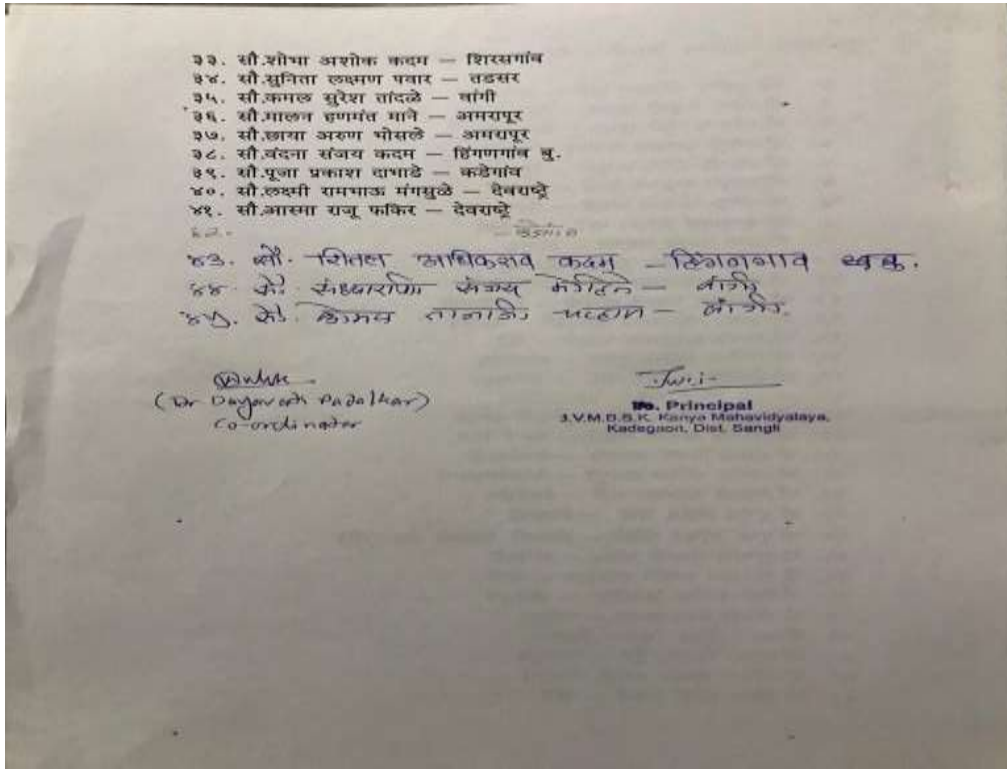 ३३. सौ.शोभा अशोक कदम — शिरसगांव
३४. सौ.सुनिता लक्ष्मण पवार — तडसर
३५. सौ.कमल सुरेश तांदळे — वांगी
३६. सौ.मालन हणमंत माने — अमरापूर
३७. सौ.छाया अरुण भोसले — अमरापूर
३८. सौ.वंदना संजय कदम — हिंगणगांव बु.
३९. सौ.पूजा प्रकाश दाभाडे — कडेगांव
४०. सौ.लक्ष्मी रामभाऊ मंगसुळे — देवराष्ट्रे
४१. सौ.आस्मा राजू फकिर — देवराष्ट्रे
४२.
४३. सौ. शितल अधिकराव कदम — हिंगणगाव बु.
४४. सौ. संध्याराणी संजय मोहिते — वांगी
४५. सौ. कोमल तानाजी चव्हाण — वांगी.
(Dr Dayavati Padalkar)
Co-ordinator
Principal
B.S.K. Kanya Mahavidyalaya,
Kadegaon, Dist. Sangli